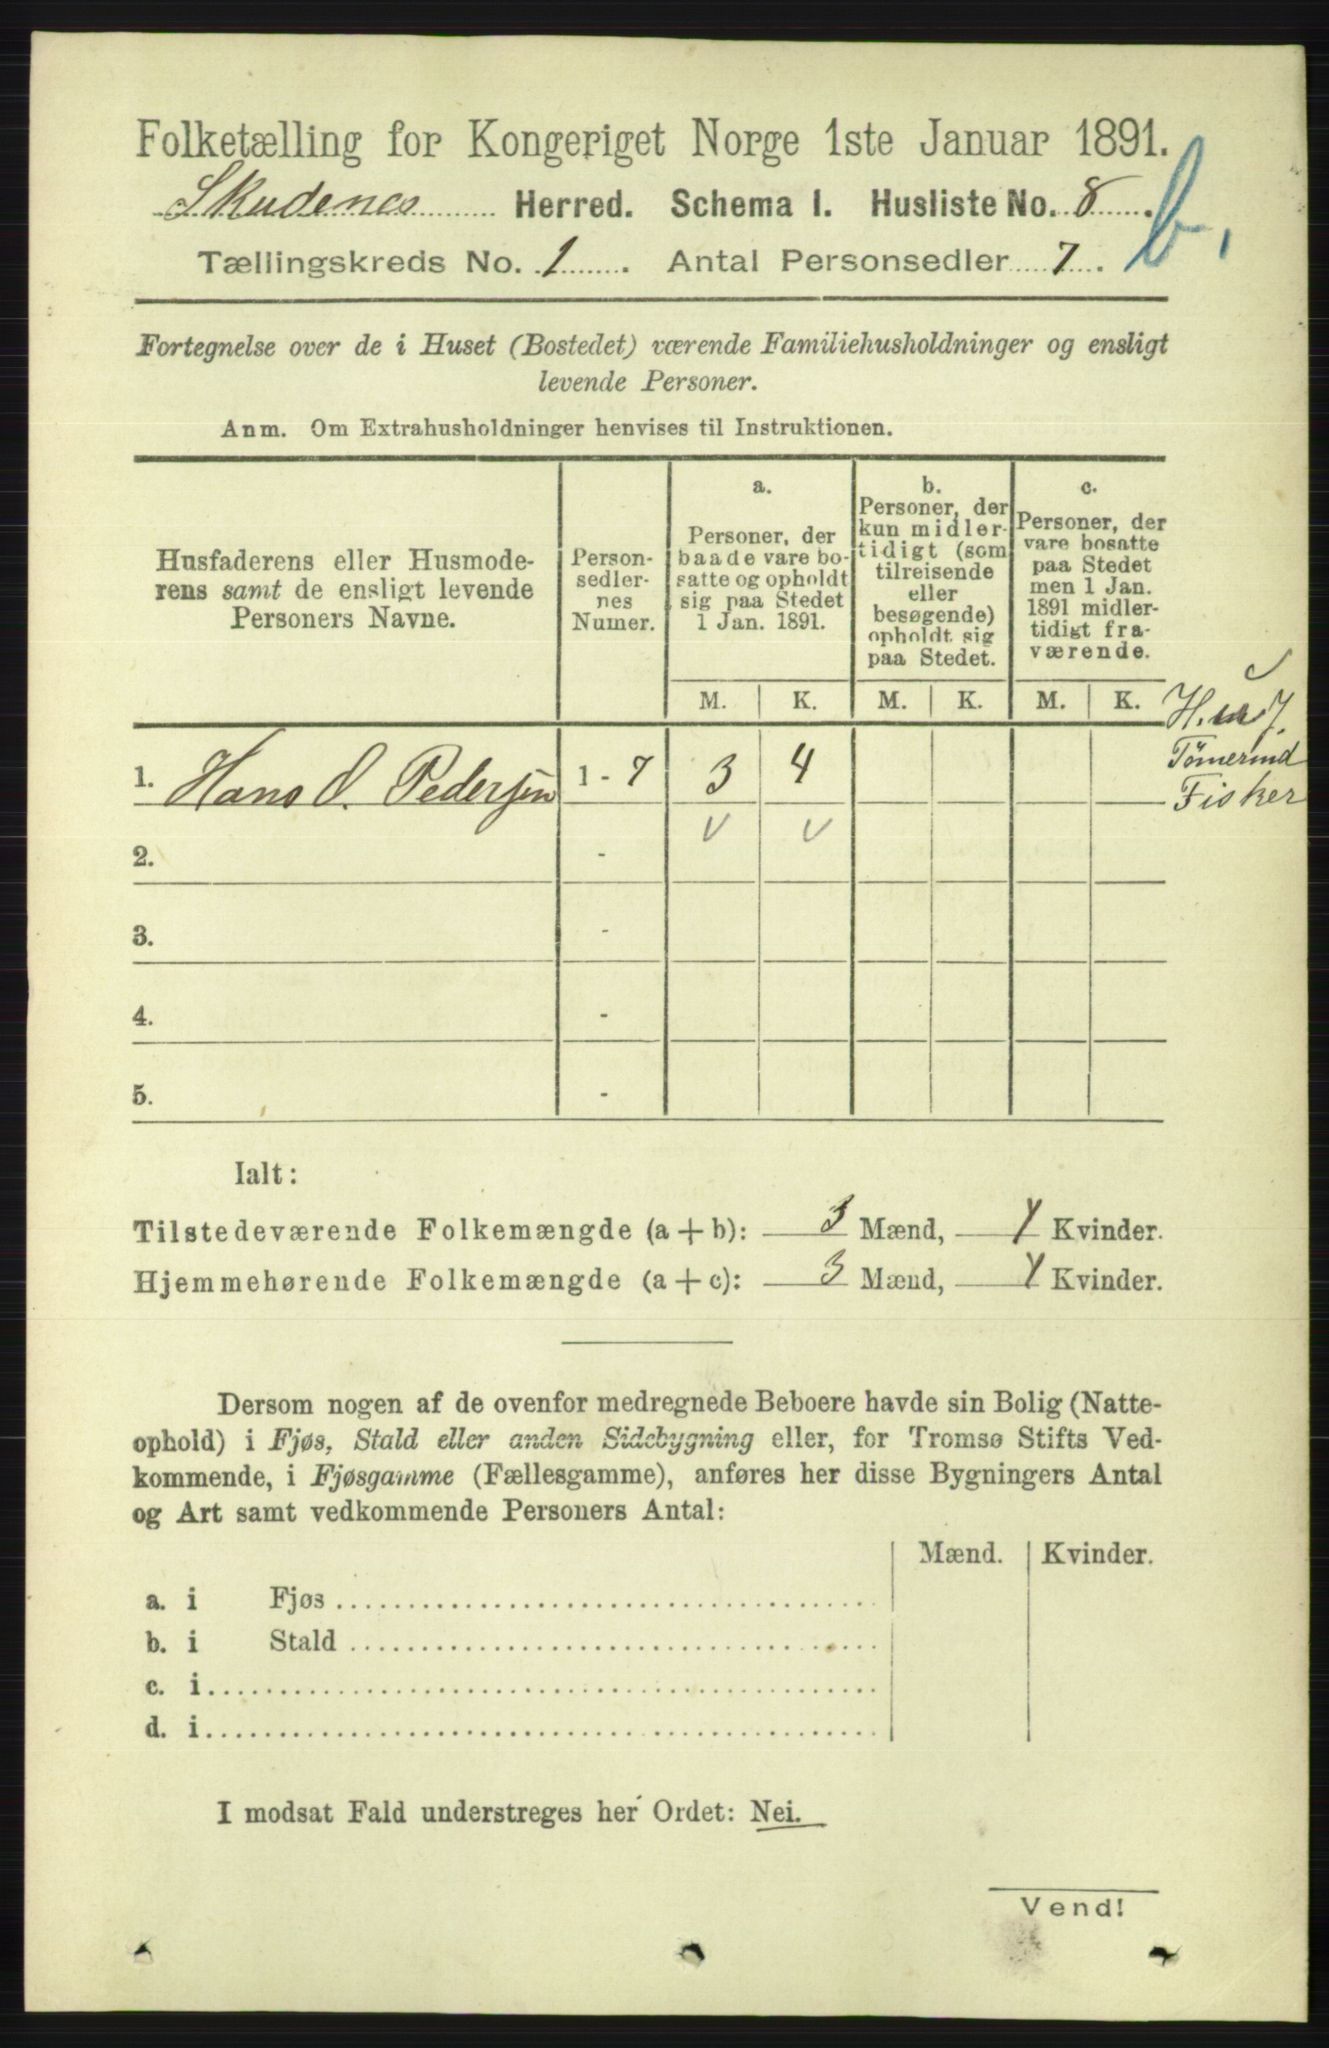 Folketælling for Kongeriget Norge 1ste Januar 1891.
Skudenes Herred. Schema I. Husliste No. 8.
b.
Tællingskreds No. 1. Antal Personsedler 7.
Fortegnelse over de i Huset (Bostedet) værende Familiehusholdninger og ensligt
levende Personer.
Anm. Om Extrahusholdninger henvises til Instruktionen.
Husfaderens eller Husmode-
rens samt de ensligt levende
Personers Navne.
Person-
sedler-
nes
Numer.
a.
Personer, der
baade vare bo-
satte og opholdt
sig paa Stedet
1 Jan. 1891.
b.
Personer, der
kun midler-
tidigt (som
tilreisende
eller
besøgende)
opholdt sig
paa Stedet.
c.
Personer, der
vare bosatte
paa Stedet
men 1 Jan.
1891 midler-
tidigt fra-
værende.
M. K. M. K. M. K.
1. Hans O. Pedersen 1 - 7 3 4
Fisker
2. -
3. -
4. -
5. -
Ialt:
Tilstedeværende Folkemængde (a + b): 3 Mænd, 4 Kvinder.
Hjemmehørende Folkemængde (a + c): 3 Mænd, 4 Kvinder.
Dersom nogen af de ovenfor medregnede Beboere havde sin Bolig (Natte-
ophold) i Fjøs, Stald eller anden Sidebygning eller, for Tromsø Stifts Ved-
kommende, i Fjøsgamme (Fællesgamme), anføres her disse Bygningers Antal
og Art samt vedkommende Personers Antal:
Mænd. Kvinder.
a. i Fjøs
b. i Stald
c. i
d. i
I modsat Fald understreges her Ordet: Nei.
Vend!